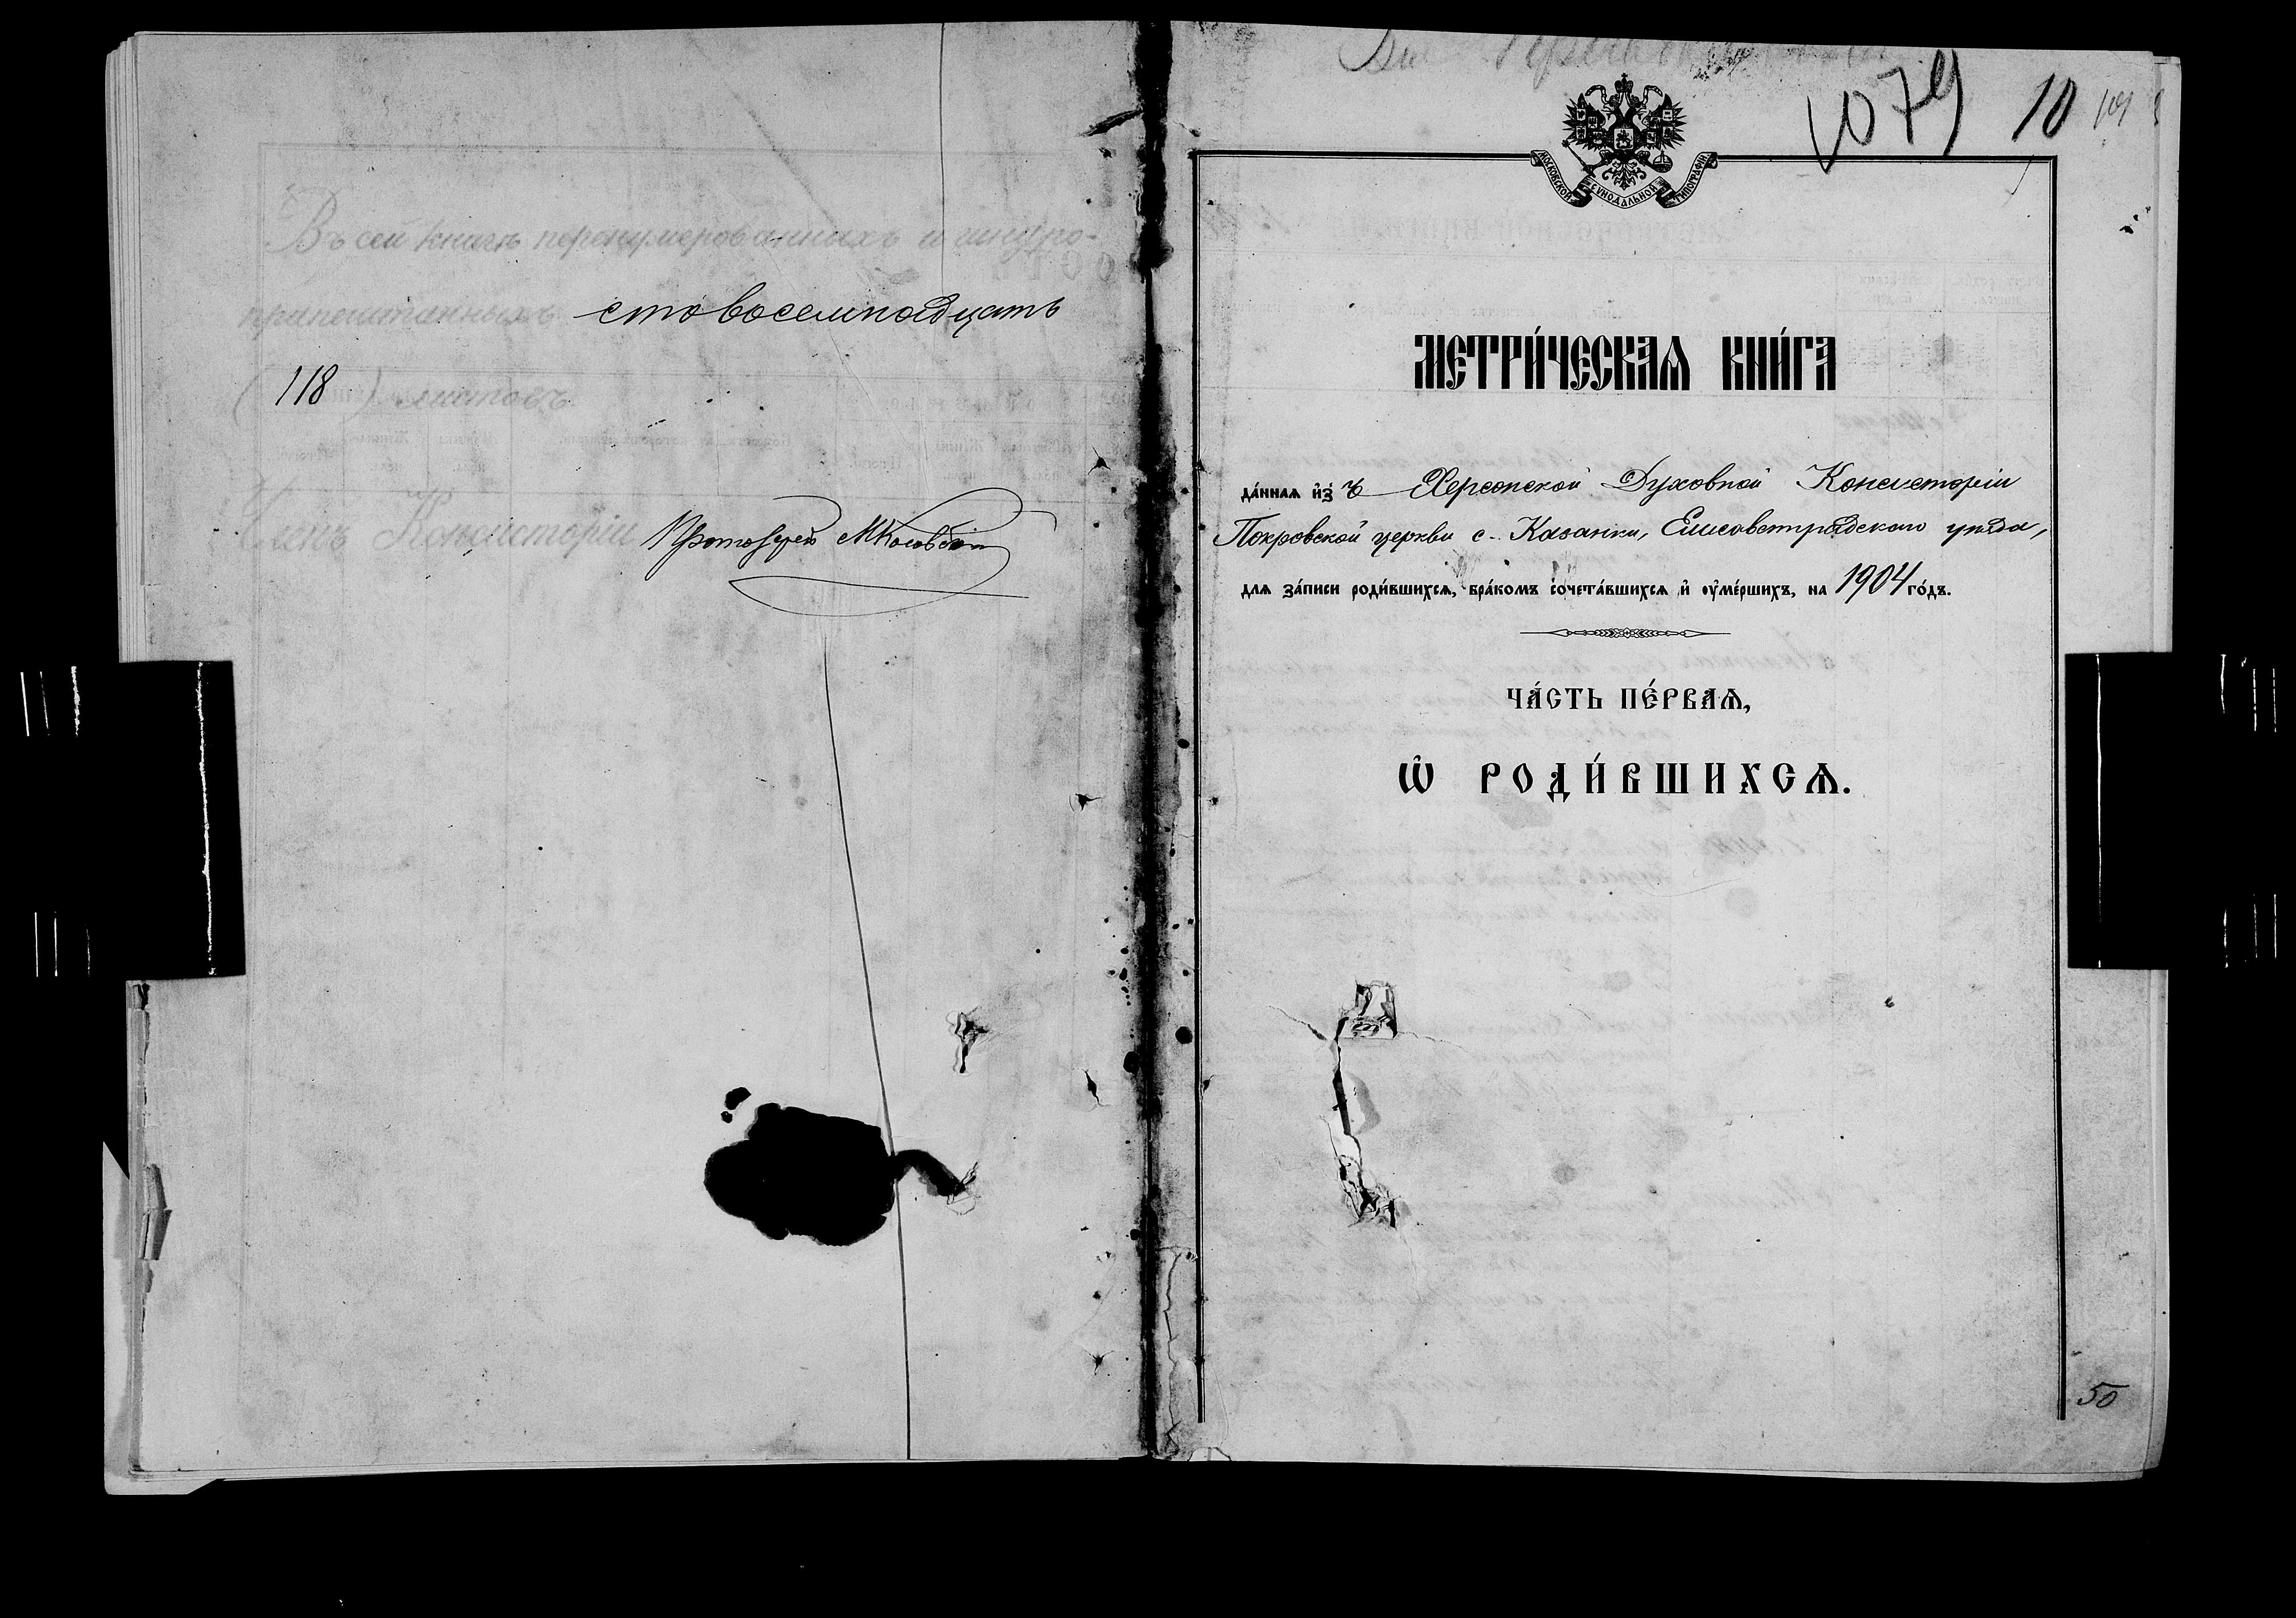 Въ сей книгѣ перенумерованныхъ и шнуро-
припечатанныхъ сто восемнадцать
(118) листовъ.
Членъ Консисторіи Протоіерей
1079 10
МОСКОВСКОЙ СѴНОДАЛЬНОЙ ТИПОГРАФІИ
МЕТРИ́ЧЕСКАѦ КНИ́ГА
да́ннаѧ и҆з̾ ъ Херсонской Духовной Консисторіи
Покровской церкви с. Казанки, Елисаветградскаго уѣзда,
длѧ за́писи роди́вшихсѧ, бра́комъ сочета́вшихсѧ и҆ ѹ҆ме́ршихъ, на 1904 го́дъ.
ЧА́СТЬ ПЕ́РВАѦ,
Ѡ҆ РОДИ́ВШИХСѦ.
50